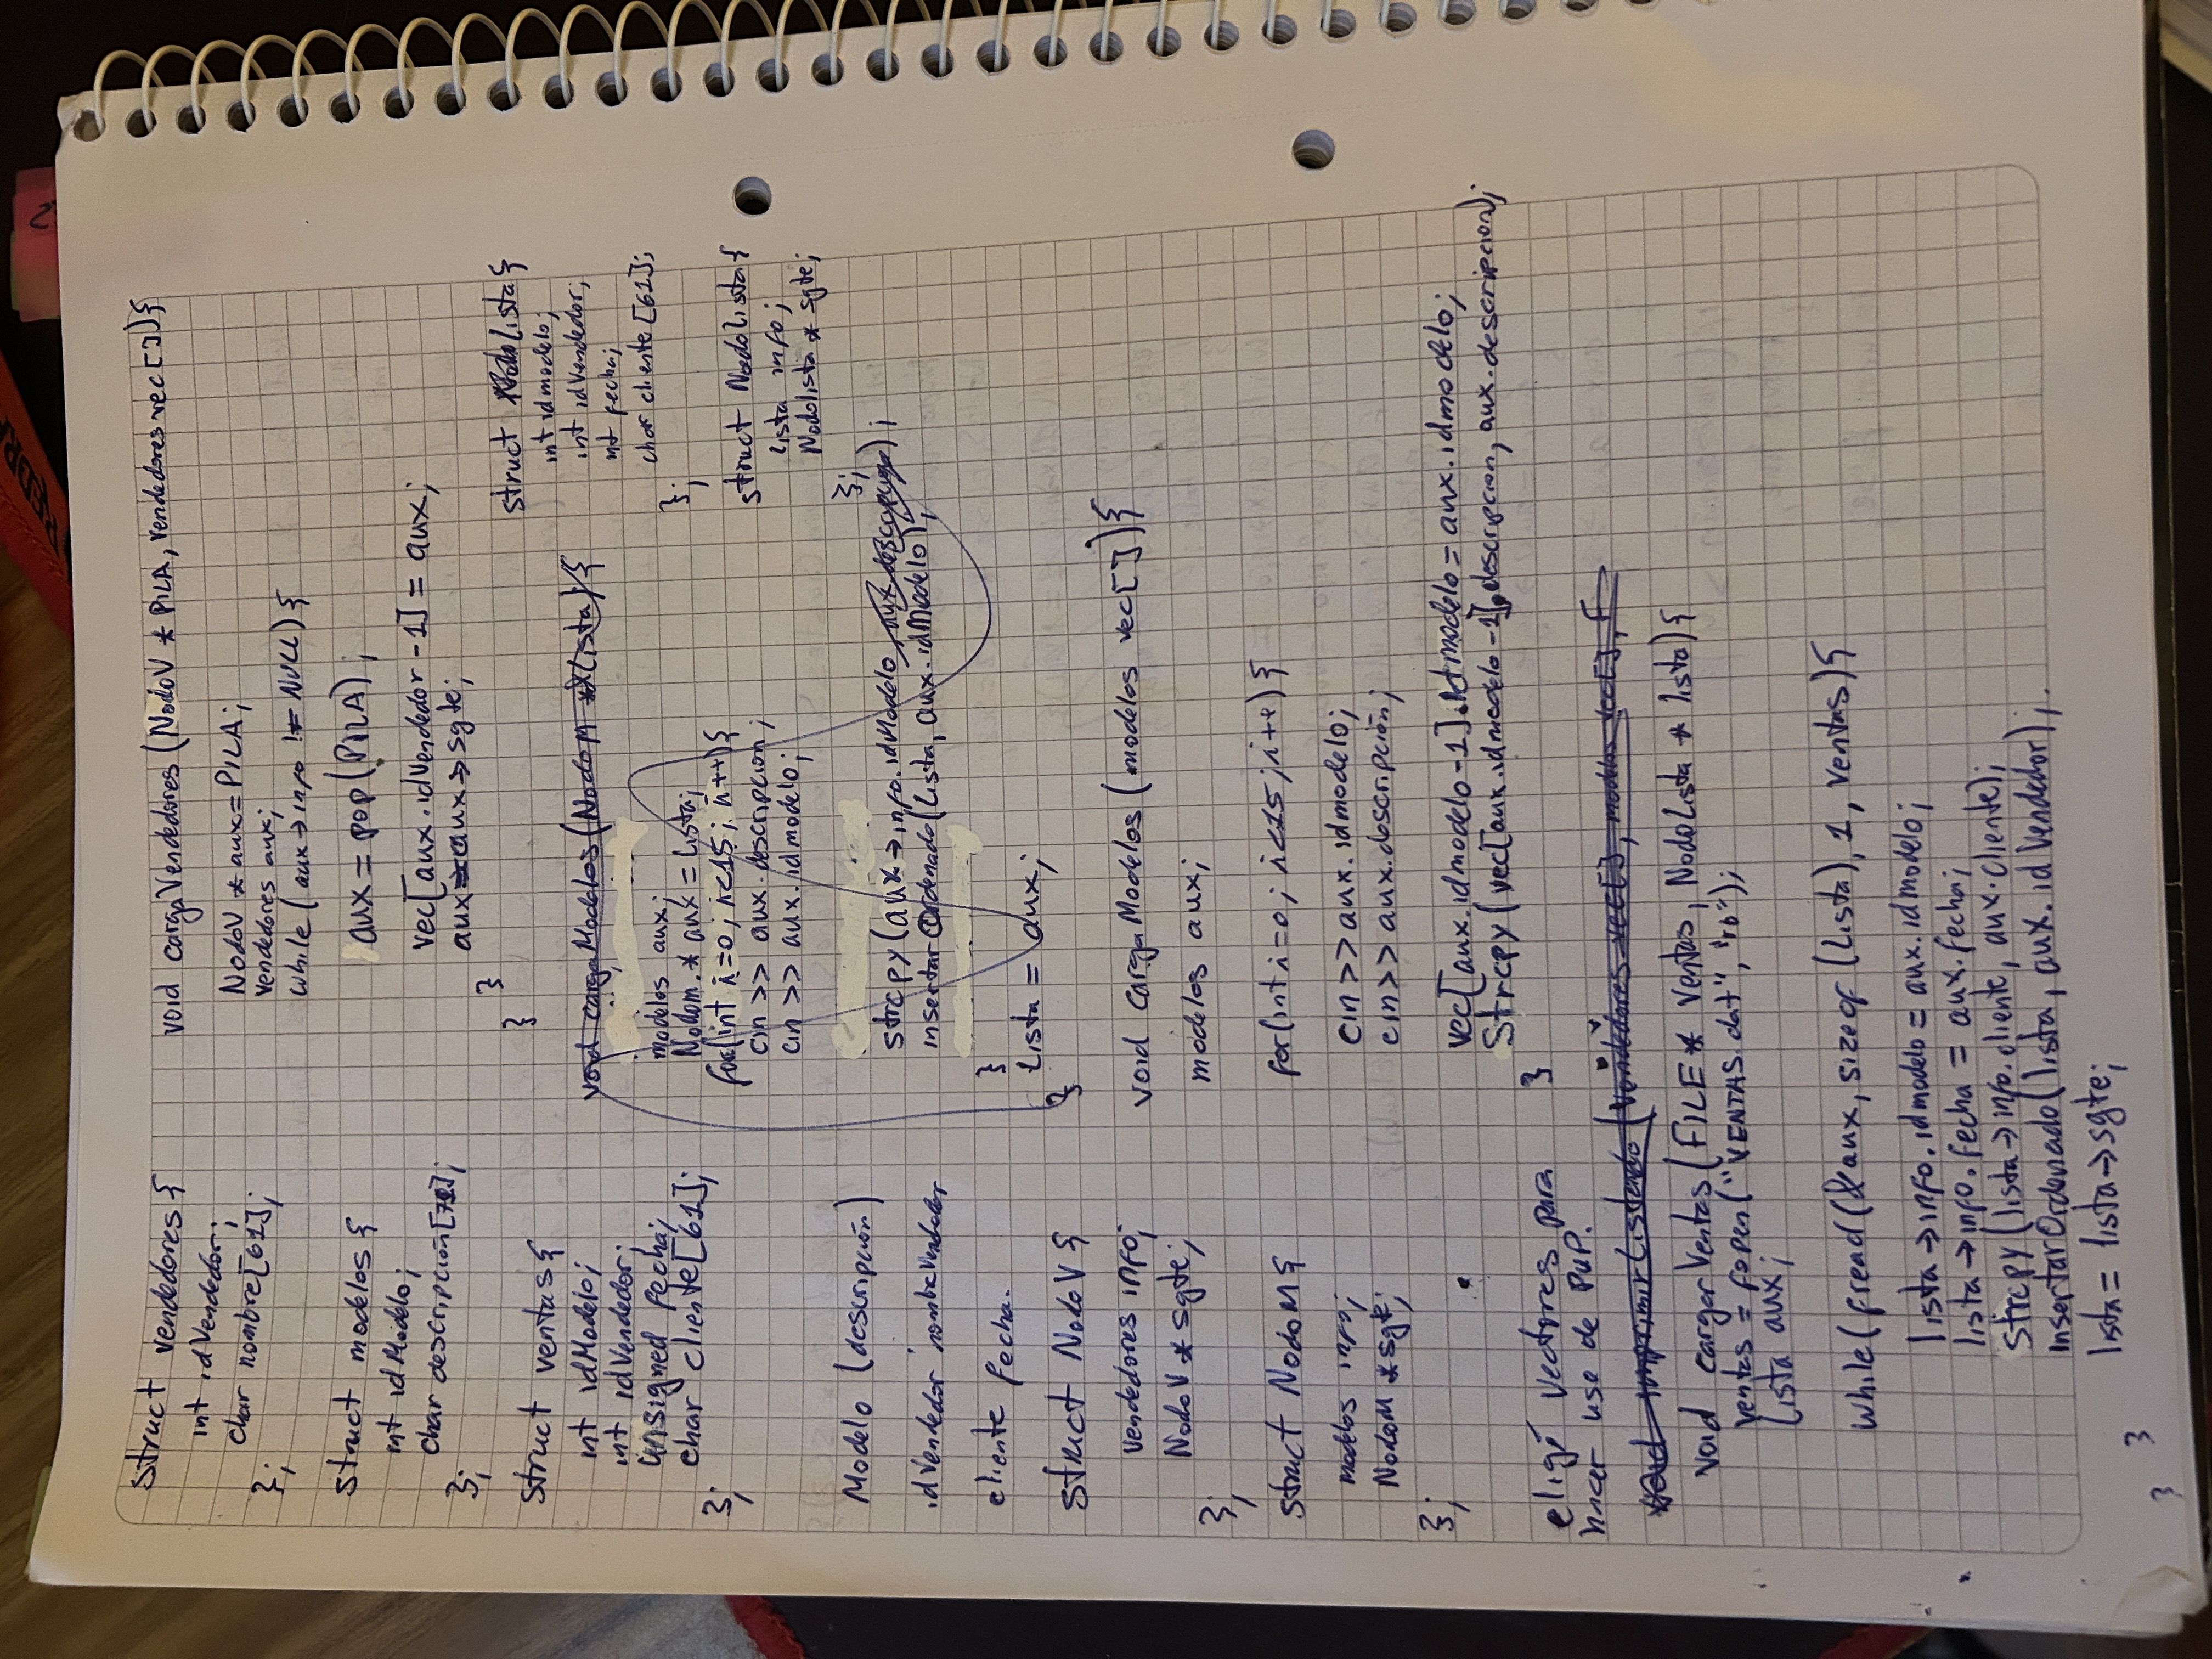 REDRA
2
struct vendedores {
int idVendedor;
char nombre[61];
};
struct modelos {
int idModelo;
char descripción[71];
};
struct ventas {
int idModelo;
int idVendedor;
unsigned fecha;
char cliente[61];
};
Modelo (descripción)
idVendedor nombreVendedor
cliente fecha.
struct NodoV {
vendedores info;
NodoV * sgte;
};
struct NodoM {
modelos info;
NodoM * sgte;
};
elegí vectores para
hacer uso de PUP.
void cargaVendedores (NodoV * PILA, vendedores vec[]){
NodoV * aux = PILA;
vendedores aux;
while (aux->info != NULL) {
aux = pop(PILA);
vec[aux.idVendedor - 1] = aux;
aux = aux->sgte;
}
}
void cargaModelos (NodoM * Lista) {
modelos aux;
NodoM * aux = Lista;
for(int i=0; i<15; i++){
cin >> aux.descripcion;
cin >> aux.idmodelo;
strcpy(aux->info.idModelo, aux.descripcion);
insertarOrdenado(Lista, aux.idModelo);
}
Lista = aux;
}
struct Lista {
int idmodelo;
int idVendedor;
int fecha;
char cliente [61];
};
struct NodoLista {
Lista info;
NodoLista * sgte;
};
void cargaModelos (modelos vec[]){
modelos aux;
for(int i=0; i<15; i++) {
cin >> aux.idmodelo;
cin >> aux.descripción;
vec[aux.idmodelo-1].idmodelo = aux.idmodelo;
Strcpy (vec[aux.idmodelo-1].descripcion, aux.descripcion);
}
void imprimirListado (vendedores vec[], modelos vec[], F
void cargarVentas (FILE * Ventas, NodoLista * lista){
ventas = fopen("VENTAS.dat", "rb");
Lista aux;
while(fread(&aux, sizeof (Lista), 1, Ventas){
lista->info.idmodelo = aux.idmodelo;
lista->info.fecha = aux.fecha;
strcpy(lista->info.cliente, aux.cliente);
insertarOrdenado(lista, aux.idVendedor);
lista = lista->sgte;
}
}